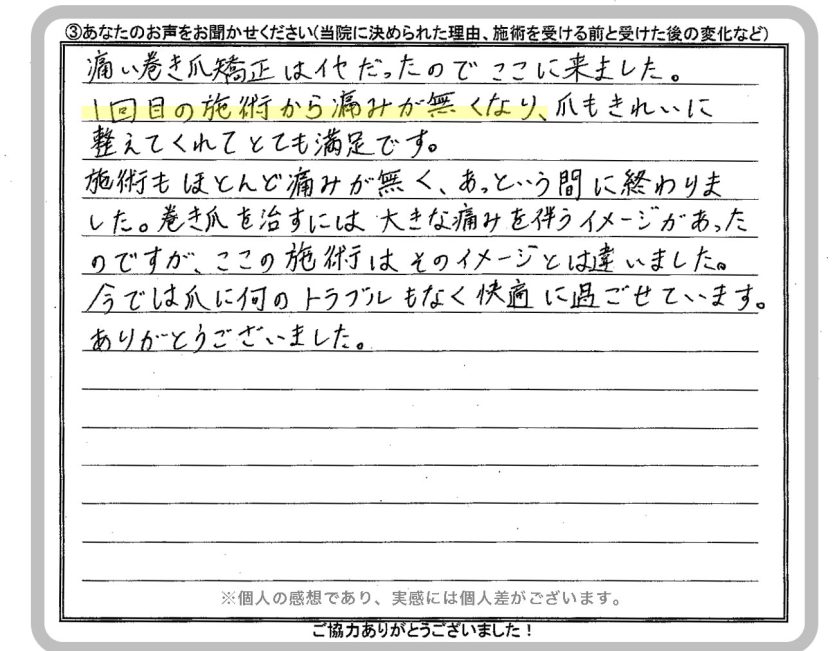 ③あなたのお声をお聞かせください(当院に決められた理由、施術を受ける前と受けた後の変化など)
痛い巻き爪矯正はイヤだったのでここに来ました。
1回目の施術から痛みが無くなり、爪もきれいに
整えてくれてとても満足です。
施術もほとんど痛みが無く、あっという間に終わりま
した。巻き爪を治すには大きな痛みを伴うイメージがあった
のですが、ここの施術はそのイメージとは違いました。
今では爪に何のトラブルもなく快適に過ごせています。
ありがとうございました。
※個人の感想であり、実感には個人差がございます。
ご協力ありがとうございました!